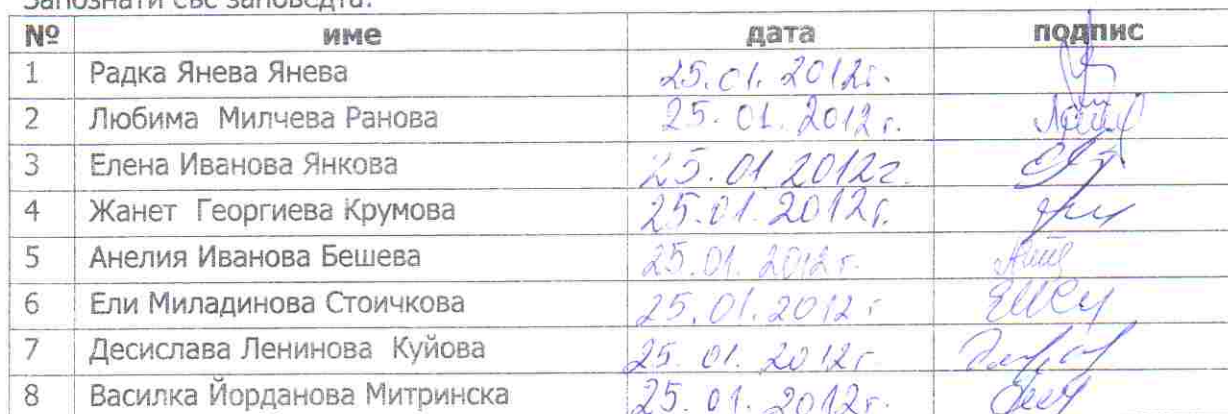 Запознати със заповедта:
№ име дата подпис
1 Радка Янева Янева 25.01.2012г.
2 Любима Милчева Ранова 25.01.2012г.
3 Елена Иванова Янкова 25.01 2012г.
4 Жанет Георгиева Крумова 25.01.2012г.
5 Анелия Иванова Бешева 25.01.2012г.
6 Ели Миладинова Стоичкова 25.01.2012г
7 Десислава Ленинова Куйова 25.01.2012г
8 Василка Йорданова Митринска 25.01.2012г.